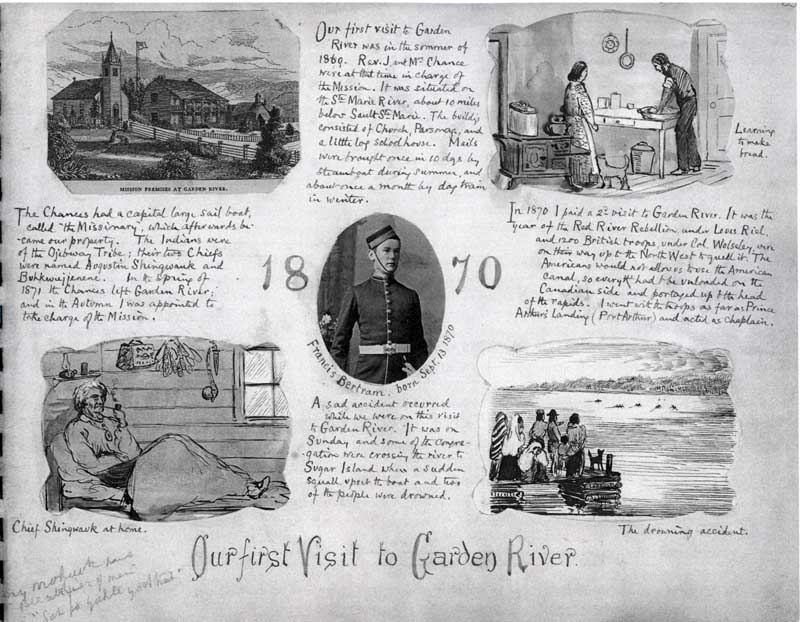 Our first visit to Garden
River was in the sommer of
1869. Rev. J. and Mrs Chance
were at that time in charge of
the Mission. It was situated on
the Ste Marie River, about 10 miles
below Sault Ste Marie. The buildgs
consisted of Church, Parsonage, and
a little log school house. Mails
were brought once in 10 days by
steamboat during summer, and
about once a month by dog train
in winter.
MISSION PREMISES AT GARDEN RIVER.
Learning
to make
bread.
The Chances had a capital large sail boat,
called "the Missionary", which afterwards be-
came our property. The Indians were
of the Ojebway Tribe; their two Chiefs
were named Augustin Shingwauk and
Buhkwujjenene. In the Spring of
1871 the Chances left Garden River;
and in the Autumn I was appointed to
take charge of the Mission.
1870
In 1870 I paid a 2d visit to Garden River. It was the
year of the Red River Rebellion under Louis Riel,
and 1200 British troops, under Col. Wolseley, were
on their way up to the North West to quell it. The
Americans would not allow us to use the American
Canal, so everything had to be unloaded on the
Canadian side and portaged up to the head
of the rapids. I went with the troops as far as Prince
Arthur's Landing (Port Arthur) and acted as Chaplain.
Francis Bertram. born Sept. 13 1870
A sad accident occurred
while we were on this visit
to Garden River. It was on
Sunday and some of the congre-
gation were crossing the river to
Sugar Island when a sudden
squall upset the boat and two
of the people were drowned.
Chief Shingwauk at home.
The drowning accident.
Our first Visit to Garden River.